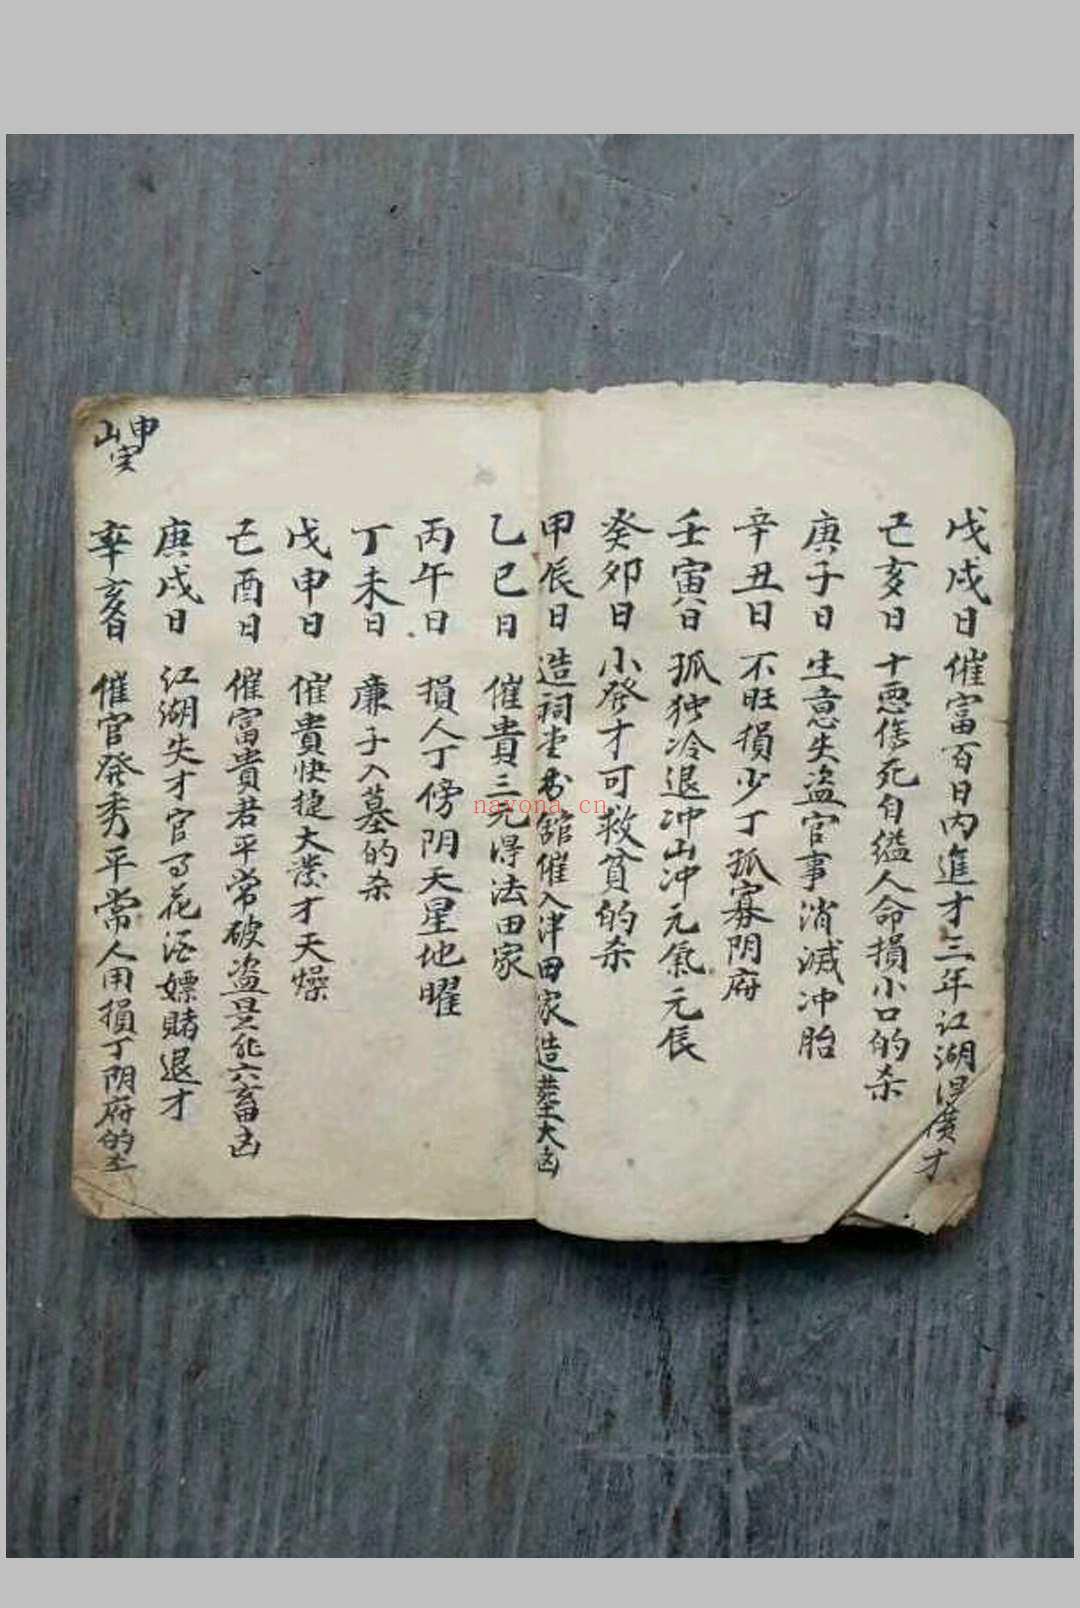 戊戌日 催富百日內進才三年江湖得廣才
己亥日 十悪傷死自縊人命損小口的杀
庚子日 生意失盗官事消滅冲胎
辛丑日 不旺損少丁孤寡阴府
壬寅日 孤独冷退冲山冲元氣元辰
癸卯日 小發才可救貧的杀
甲辰日 造祠堂书館催入津田家造塟大凶
乙巳日 催貴三元得法田家
丙午日 損人丁傍阴天星地曜
丁未日 廉子入墓的杀
戊申日 催貴快捷大發才天燥
己酉日 催富貴若平常破盗六畜凶
庚戌日 江湖失才官花酒嫖賭退才
辛亥日 催官發秀平常人用損丁阴府的
申山
nayona.cn